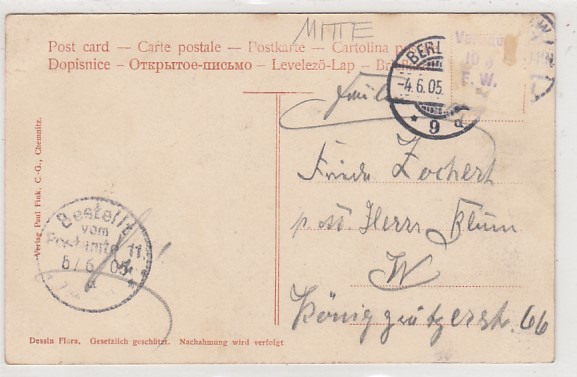 MITTE
Post card — Carte postale — Postkarte — Cartolina
Dopisnice — Открытое-письмо — Levelező-Lap —
BERL
-4.6.05.
* 9 d
F. W.
Frida Zochert
Herrn Blum
W
Königgrätzerstr. 66
Bestellt
vom
Postamte 11.
5/6 05
Verlag Paul Fink, C.-G., Chemnitz.
Dessin Flora. Gesetzlich geschützt. Nachahmung wird verfolgt